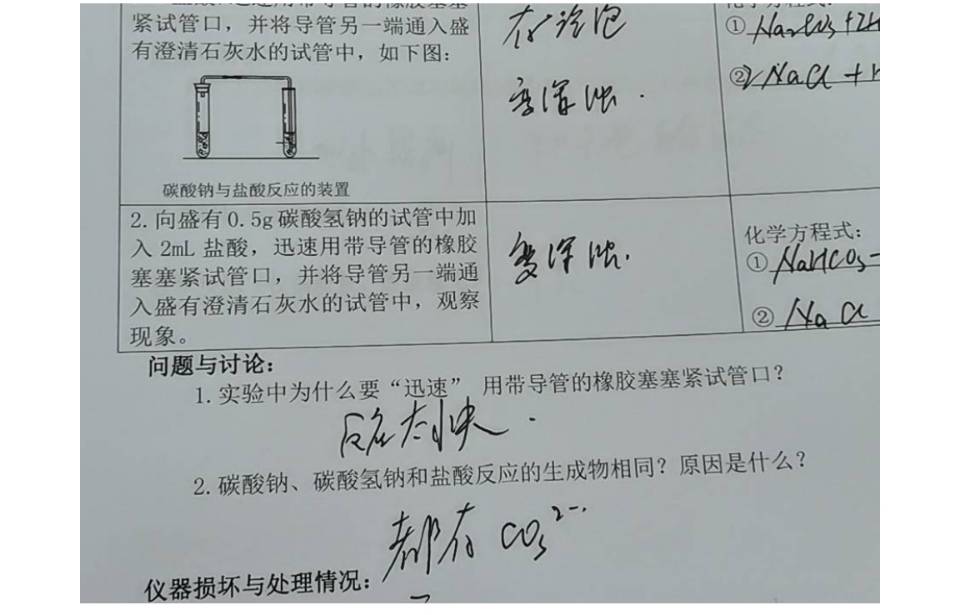 紧试管口，并将导管另一端通入盛
有澄清石灰水的试管中，如下图：
碳酸钠与盐酸反应的装置
有冷泡
变浑浊.
①Na₂CO₃+2H
②NaCl+H
2.向盛有0.5g碳酸氢钠的试管中加
入2mL盐酸，迅速用带导管的橡胶
塞塞紧试管口，并将导管另一端通
入盛有澄清石灰水的试管中，观察
现象。
变浑浊.
化学方程式：
①NaHCO₃-
②NaCl
问题与讨论：
1.实验中为什么要“迅速” 用带导管的橡胶塞塞紧试管口？
反应太快.
2.碳酸钠、碳酸氢钠和盐酸反应的生成物相同？原因是什么？
都有CO₃²⁻.
仪器损坏与处理情况：